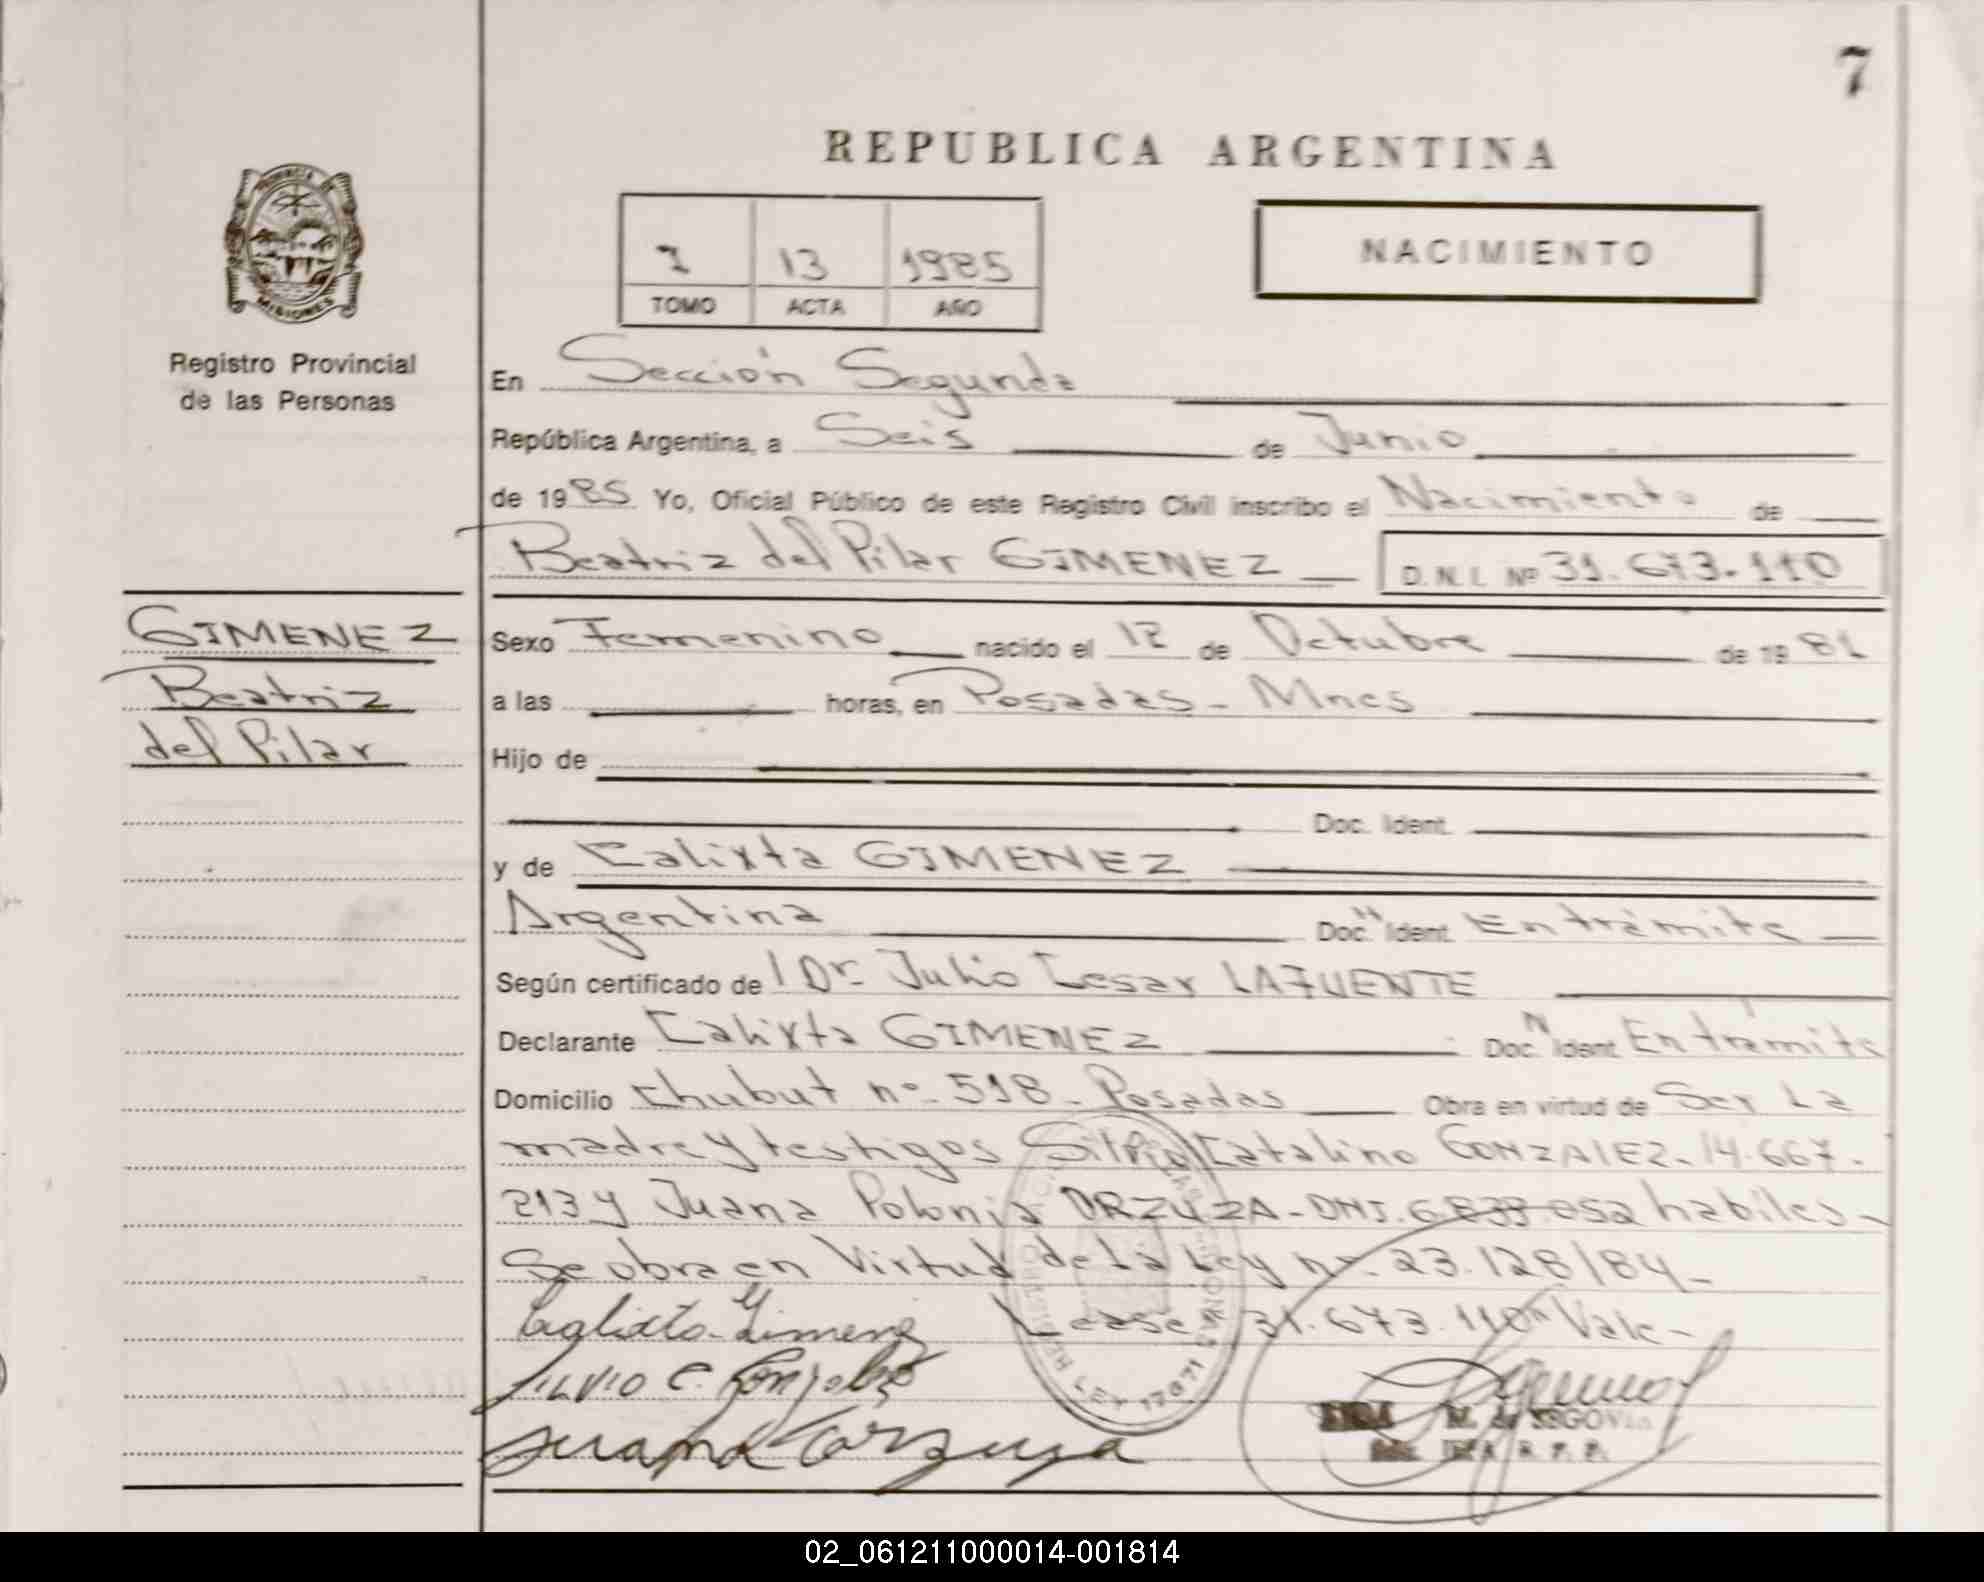 7
REPUBLICA ARGENTINA
PROVINCIA DE
MISIONES
1 13 1985
TOMO ACTA AÑO
NACIMIENTO
Registro Provincial
de las Personas
En Sección Segunda
República Argentina, a Seis de Junio
de 1985 Yo, Oficial Público de este Registro Civil inscribo el Nacimiento de
Beatriz del Pilar GIMENEZ D.N.I. Nº 31.673.110
GIMENEZ
Beatriz
del Pilar
Sexo Femenino nacido el 12 de Octubre de 1981
a las horas, en Posadas - Mnes
Hijo de
Doc. Ident.
y de Calixta GIMENEZ
Argentina Doc. Ident. En trámite
Según certificado de Dr. Julio Cesar LAFUENTE
Declarante Calixta GIMENEZ Doc. Ident. En tramite
Domicilio Chubut nº 518 - Posadas Obra en virtud de Ser La
madre y testigos Silvio Catalino GONZALEZ - 14.667.
213 y Juana Polonia ORZUZA - DNI. 6.839.052 habiles -
Se obra en Virtud de La Ley nº 23.128/84 -
Léase 31.673.110 Vale -
Silvio C. Gonzalez
Juana Corzuza
LEY 17671
M. de SEGOVIA
R. P. P.
02_061211000014-001814